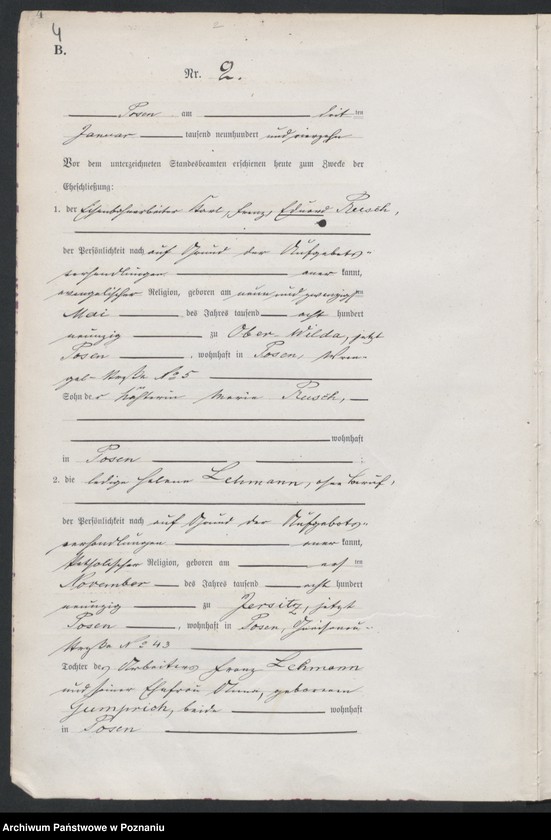 4
B.
Nr. 2.
Posen am
Januar tausend neunhundert und vierzehn
Vor dem unterzeichneten Standesbeamten erschienen heute zum Zwecke der
Eheschließung:
1. der Eisenbahnarbeiter Karl, Franz, Eduard Reusch,
der Persönlichkeit nach auf Grund der Aufgebots-
verhandlungen aner kannt,
evangelischer Religion, geboren am neun und zwanzigsten
Mai des Jahres tausend acht hundert
neunzig zu Ober Wilda, jetzt
Posen, wohnhaft in Posen,
Straße No 5
Sohn der Marie Reusch,
wohnhaft
in Posen ;
2. die ledige Helene Lehmann, ohne Beruf,
der Persönlichkeit nach auf Grund der Aufgebots-
verhandlungen aner kannt,
katholischer Religion, geboren am ten
November des Jahres tausend acht hundert
neunzig zu Jersitz, jetzt
Posen, wohnhaft in Posen,
Straße No 43
Tochter des Arbeiters Franz Lehmann
und seiner Ehefrau Anna, geborenen
Gumprich, beide wohnhaft
in Posen
Archiwum Państwowe w Poznaniu